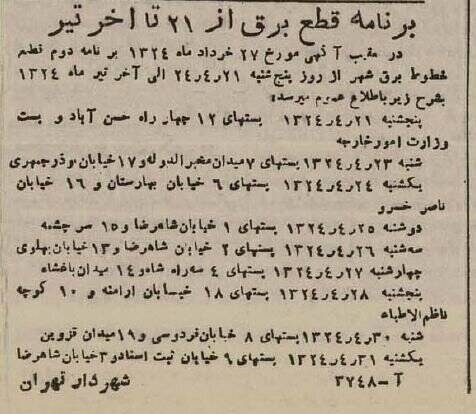 برنامه قطع برق از ۲۱ تا آخر تیر
در عقب آگهی مورخ ۲۷ خرداد ماه ۱۳۲۴ برنامه دوم قطع
خطوط برق شهر از روز پنج‌شنبه ۲۱ر۴ر۲۴ الی آخر تیر ماه ۱۳۲۴
بشرح زیر باطلاع عموم میرسد:
پنجشنبه ۲۱ر۴ر۱۳۲۴ بستهای ۱۲ چهار راه حسن آباد و بست
وزارت امورخارجه
شنبه ۲۳ر۴ر۱۳۲۴ بستهای ۷ میدان مخبرالدوله و ۱۷ خیابان بوذرجمهری
یکشنبه ۲۴ر۴ر۱۳۲۴ بستهای ۶ خیابان بهارستان و ۱۶ خیابان
ناصر خسرو
دوشنبه ۲۵ر۴ر۱۳۲۴ بستهای ۱ خیابان شاهرضا و ۱۵ سرچشمه
سه‌شنبه ۲۶ر۴ر۱۳۲۴ بستهای ۲ خیابان شاهرضا و ۱۳ خیابان پهلوی
چهارشنبه ۲۷ر۴ر۱۳۲۴ بستهای ۴ سه راه شاه و ۱۴ میدان باغشاه
پنجشنبه ۲۸ر۴ر۱۳۲۴ بستهای ۱۸ خیابان ارامنه و ۱۰ کوچه
ناظم‌الاطباء
شنبه ۳۰ر۴ر۱۳۲۴ بستهای ۸ خیابان فردوسی و ۱۹ میدان قزوین
یکشنبه ۳۱ر۴ر۱۳۲۴ بستهای ۹ خیابان ثبت اسناد و ۳ خیابان شاهرضا
آ-۳۷۴۸ شهردار تهران